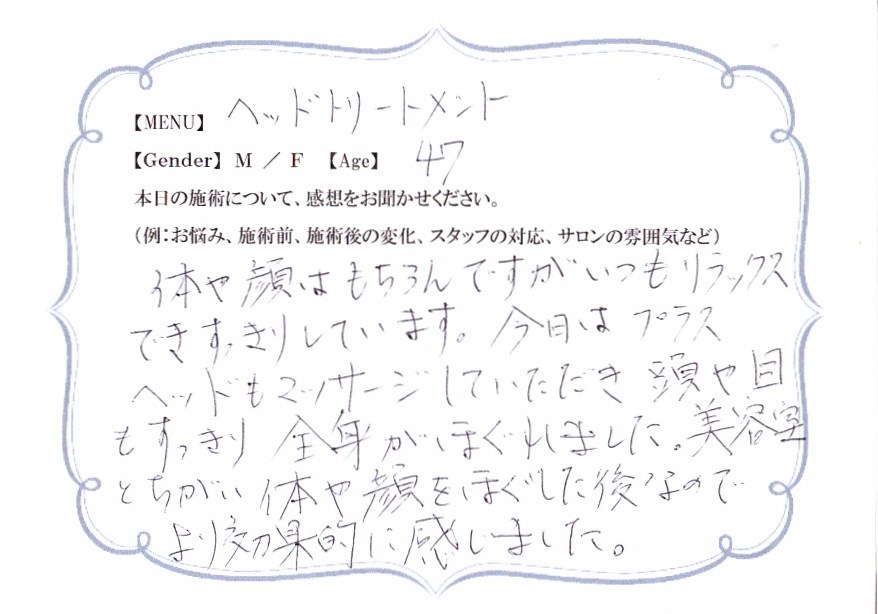 【MENU】 ヘッドトリートメント
【Gender】 M ／ F 【Age】 47
本日の施術について、感想をお聞かせください。
（例：お悩み、施術前、施術後の変化、スタッフの対応、サロンの雰囲気など）
体や顔はもちろんですがいつもリラックス
できすっきりしています。今日はプラス
ヘッドもマッサージしていただき頭や目
もすっきり全身がほぐれました。美容室
とちがい体や顔をほぐした後なので
より効果的に感じました。